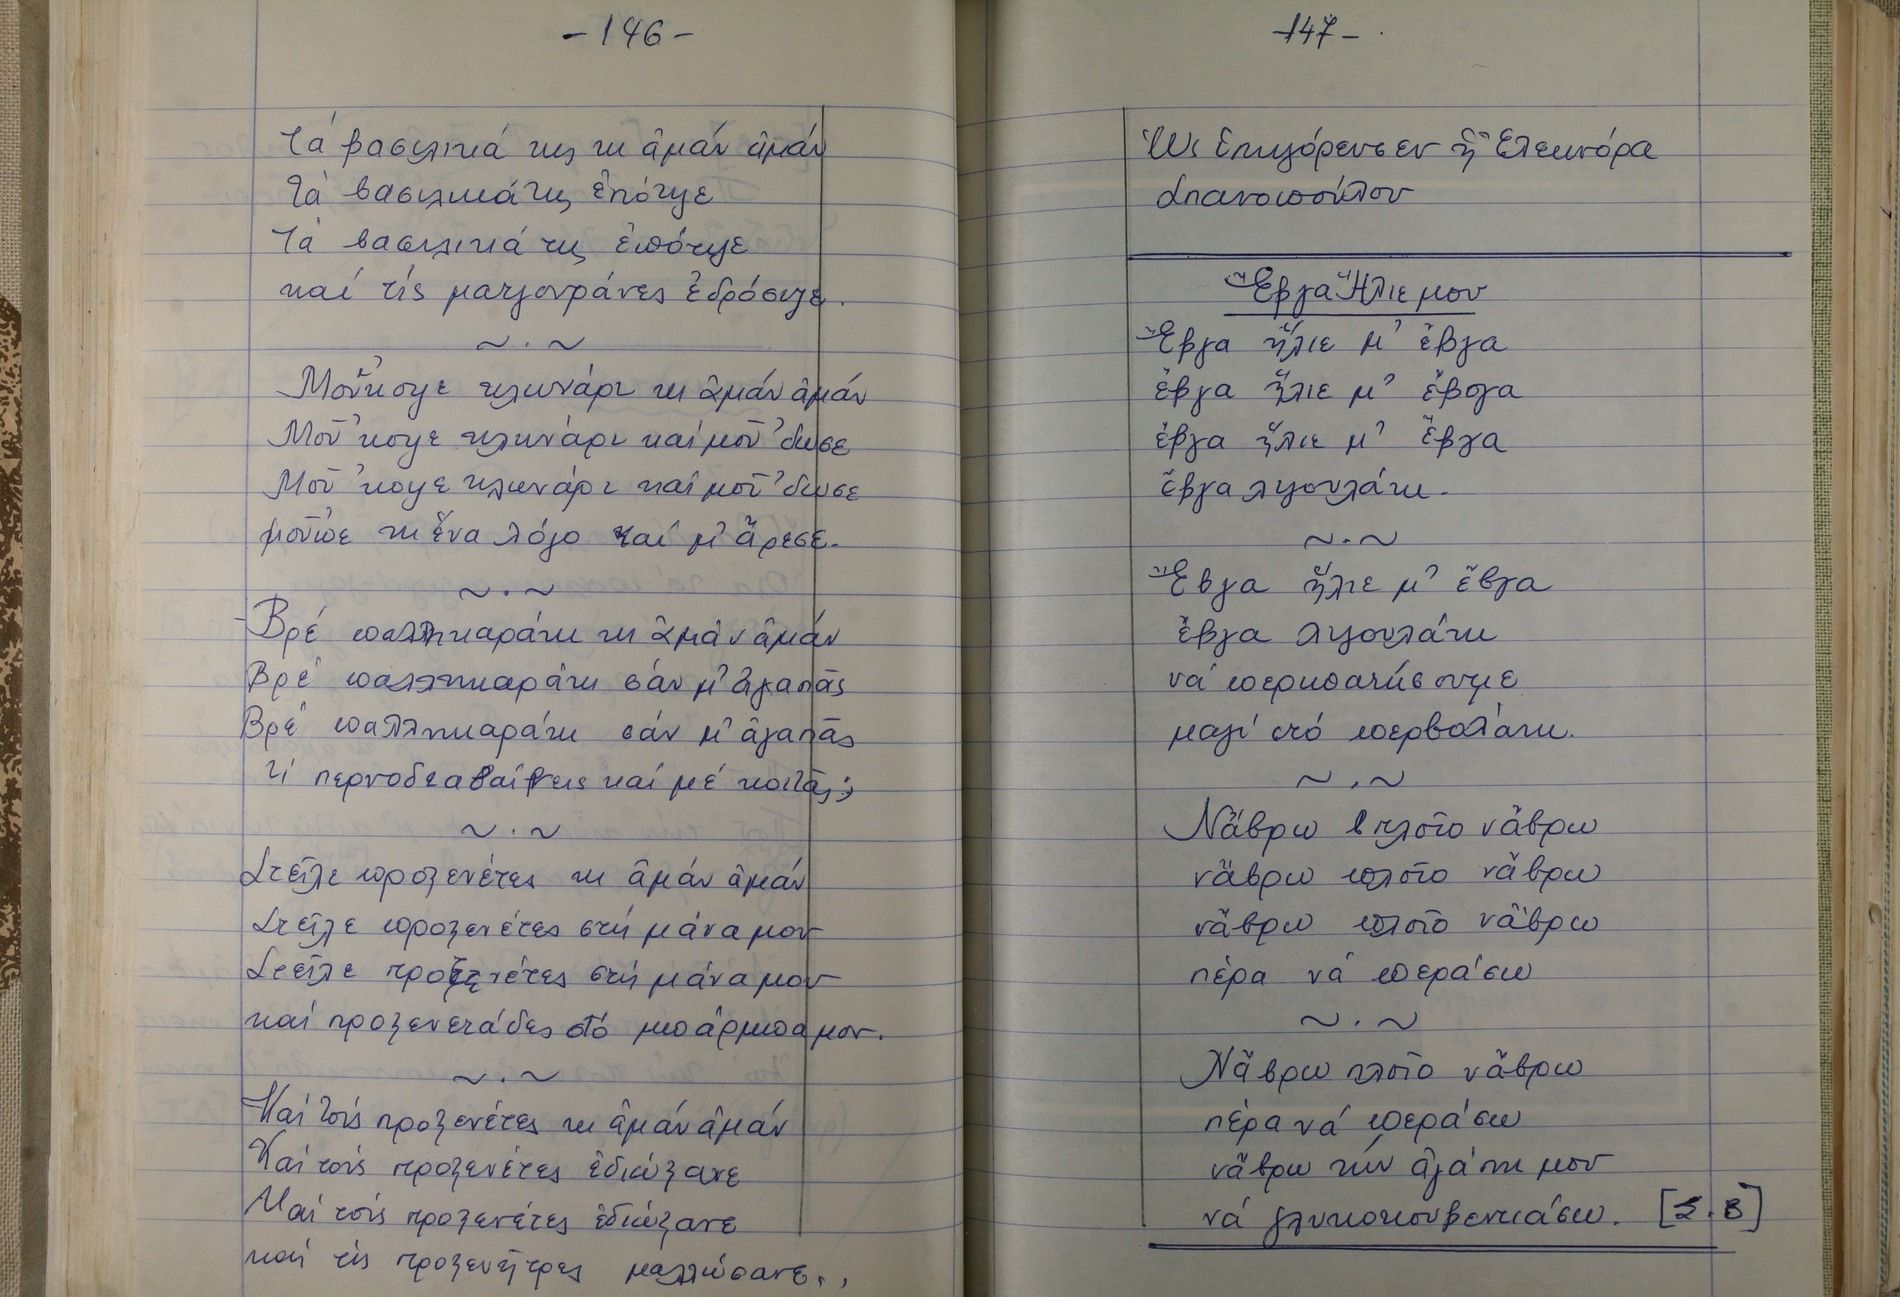 -146-
τά βασιλικά της τη ἀμάν ἀμάν
τά βασιλικά της ἐπότιζε
τά βασιλικά της ἐπότιζε
καί τίς ματζουράνες ἐδρόσιζε.
~.~
Μοὔκοψε κλωνάρι τη ἀμάν ἀμάν
Μοῦ 'κοψε κλωνάρι καί μοῦ 'δωσε
Μοῦ 'κοψε κλωνάρι καί μοῦ 'δωσε
μοὖπε τη ἕνα λόγο καί μ' ἄρεσε.
~.~
Βρέ παλληκαράκι τη ἀμάν ἀμάν
Βρέ παλληκαράκι σάν μ' ἀγαπᾶς
Βρέ παλληκαράκι σάν μ' ἀγαπᾶς
τί περνοδιαβαίνεις καί μέ κοιτᾶς;
~.~
Στεῖλε προξενέτες τη ἀμάν ἀμάν
Στεῖλε προξενέτες στή μάνα μου
Στεῖλε προξενέτες στή μάνα μου
καί προξενετάδες στό μπάρμπα μου.
~.~
Καί τούς προξενέτες τη ἀμάν ἀμάν
Καί τούς προξενέτες ἐδιώξανε
Καί τούς προξενέτες ἐδιώξανε
καί τίς προξενῆτρες μαλλώσανε..
-147-
Ὡς ὑπηγόρευσεν ἡ Ἐλεωνόρα
Σπανοπούλου
Ἔβγα Ἥλιε μου
Ἔβγα ἥλιε μ' ἔβγα
ἔβγα ἥλιε μ' ἔβγα
ἔβγα ἥλιε μ' ἔβγα
ἔβγα λιγουλάκι.
~.~
Ἔβγα ἥλιε μ' ἔβγα
ἔβγα λιγουλάκι
νά περπατήσουμε
μαζί στό περβολάκι.
~.~
Νἄβρω πλοῖο νἄβρω
νἄβρω πλοῖο νἄβρω
νἄβρω πλοῖο νἄβρω
πέρα νά περάσω
~.~
Νἄβρω πλοῖο νἄβρω
πέρα νά περάσω
νἄβρω τήν ἀγάπη μου
νά γλυκοκουβεντιάσω. [Σ.Β]